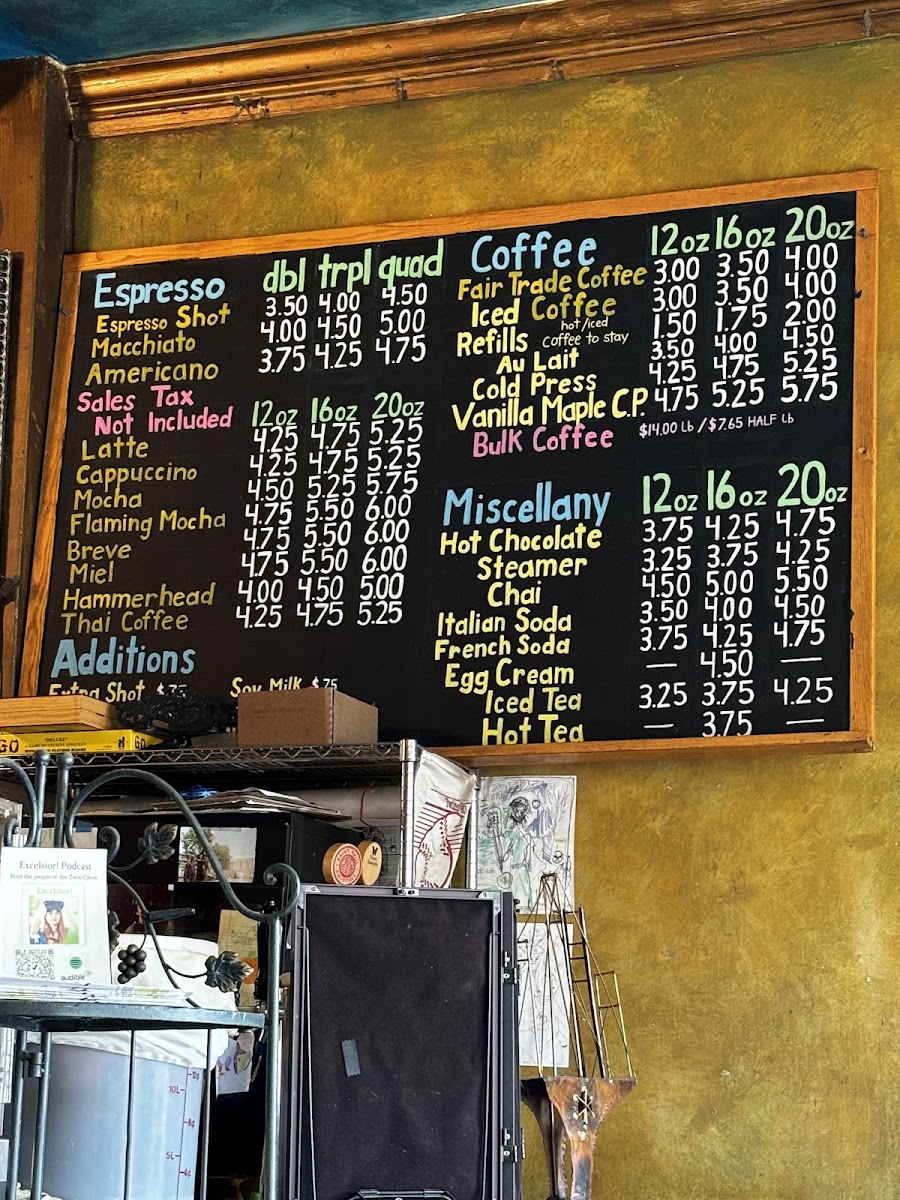 Espresso dbl trpl quad
Espresso Shot 3.50 4.00 4.50
Macchiato 4.00 4.50 5.00
Americano 3.75 4.25 4.75
Sales Tax
Not Included 12oz 16oz 20oz
Latte 4.25 4.75 5.25
Cappuccino 4.25 4.75 5.25
Mocha 4.50 5.25 5.75
Flaming Mocha 4.75 5.50 6.00
Breve 4.75 5.50 6.00
Miel 4.75 5.50 6.00
Hammerhead 4.00 4.50 5.00
Thai Coffee 4.25 4.75 5.25
Additions
Extra Shot $.75 Soy Milk $.75
Coffee 12oz 16oz 20oz
Fair Trade Coffee 3.00 3.50 4.00
Iced Coffee 3.00 3.50 4.00
Refills hot/iced coffee to stay 1.50 1.75 2.00
Au Lait 3.50 4.00 4.50
Cold Press 4.25 4.75 5.25
Vanilla Maple C.P. 4.75 5.25 5.75
Bulk Coffee $14.00 Lb / $7.65 HALF Lb
Miscellany 12oz 16oz 20oz
Hot Chocolate 3.75 4.25 4.75
Steamer 3.25 3.75 4.25
Chai 4.50 5.00 5.50
Italian Soda 3.50 4.00 4.50
French Soda 3.75 4.25 4.75
Egg Cream — 4.50 —
Iced Tea 3.25 3.75 4.25
Hot Tea — 3.75 —
GO "DELUXE" GO
Excelsior! Podcast
Meet the people of the Twin Cities
Excelsior!
audible
10L
5L